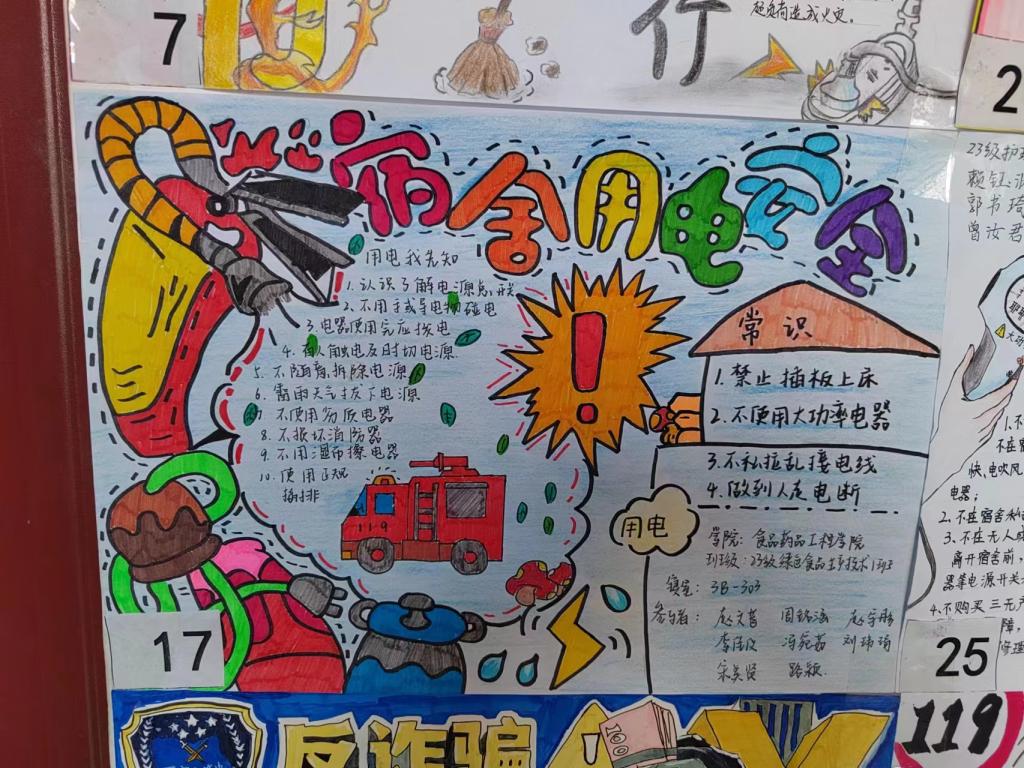 7
行
起负荷造成火灾。
2
宿舍用电安全
用电我先知
1.认识了解电源总开关
2.不用手或导电物碰电
3.电器使用完应拔电
4.有人触电及时切电源.
5.不随意拆除电源
6.雷雨天气拔下电源
7.不使用劣质电器
8.不损坏消防器
9.不用湿布擦电器
10.使用正规
插排
119
常识
1.禁止插板上床
2.不使用大功率电器
3.不私拉乱接电线
4.做到人走电断
用电
学院:食品药品工程学院
班级:23级绿色食品生产技术1班
寝室:3B-303
参与者:
17
23级护理
郭书琦
曾汝君
1.不
不在宿
快、电吹风
电器;
2.不在宿舍私
3.不在无人
离开宿舍前,
器等电源开关
4.不购买三无产
障,
25
反诈骗
100
119